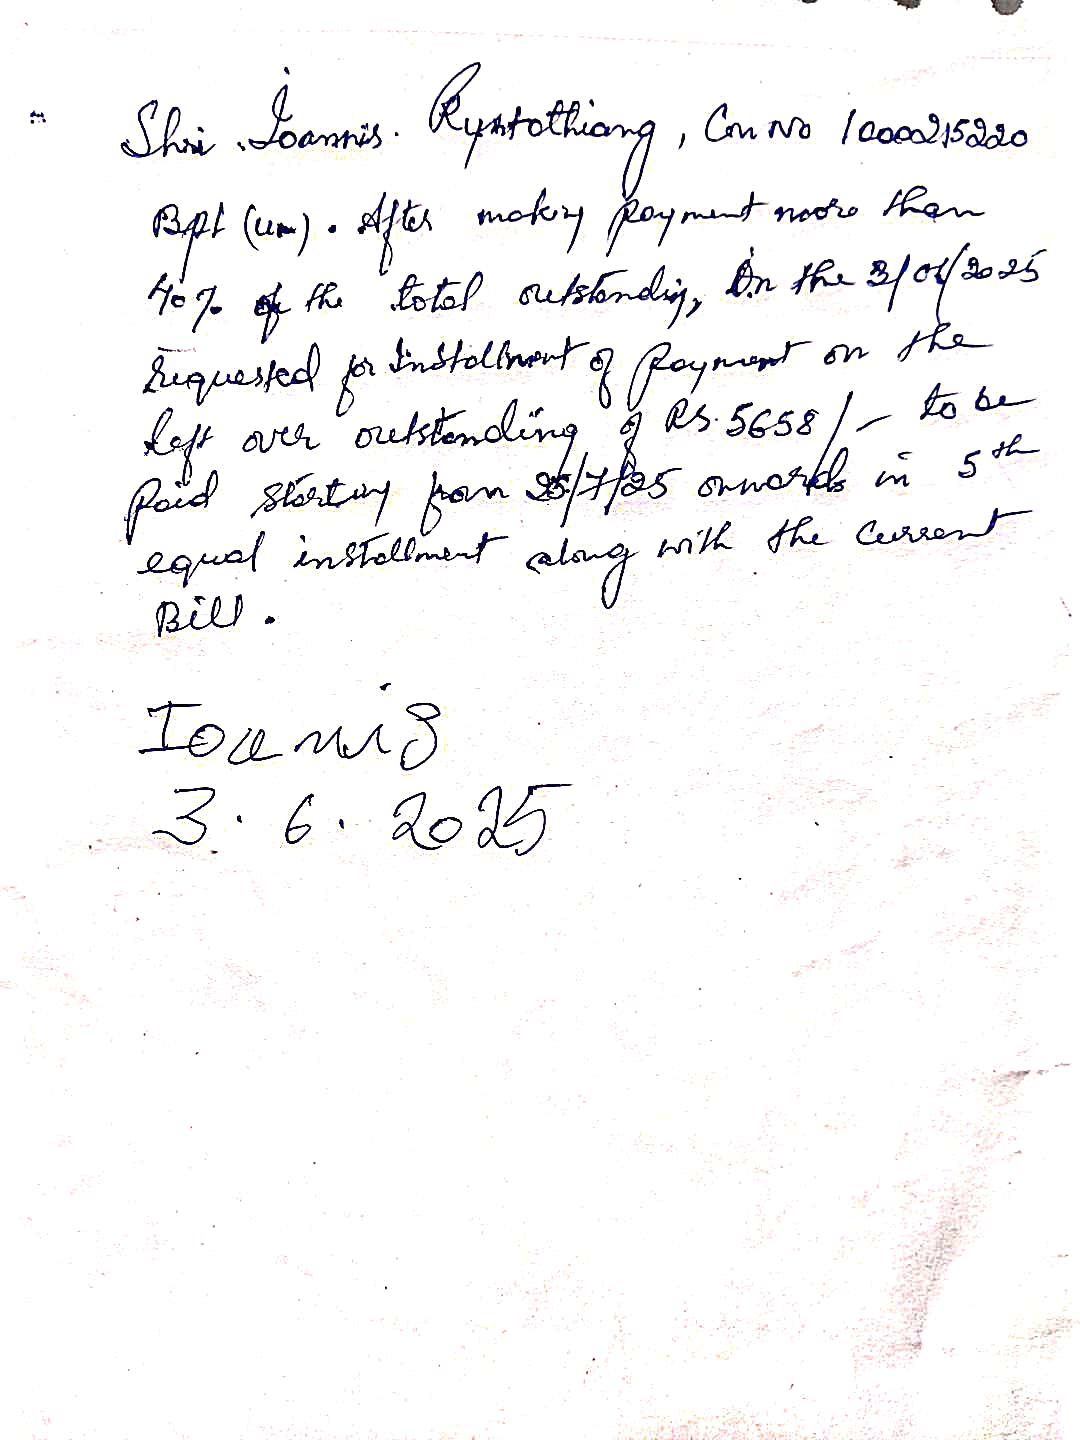 Shri. Ioannis. Ryntathiang, Con No 1000215220
Bpl (um). After making payment more than
40% of the total outstanding, On the 3/06/2025
requested for Installment of payment on the
left over outstanding of RS. 5658/- to be
paid starting from 25/7/25 onwards in 5th
equal installment along with the current
Bill.
Ioannis
3. 6. 2025